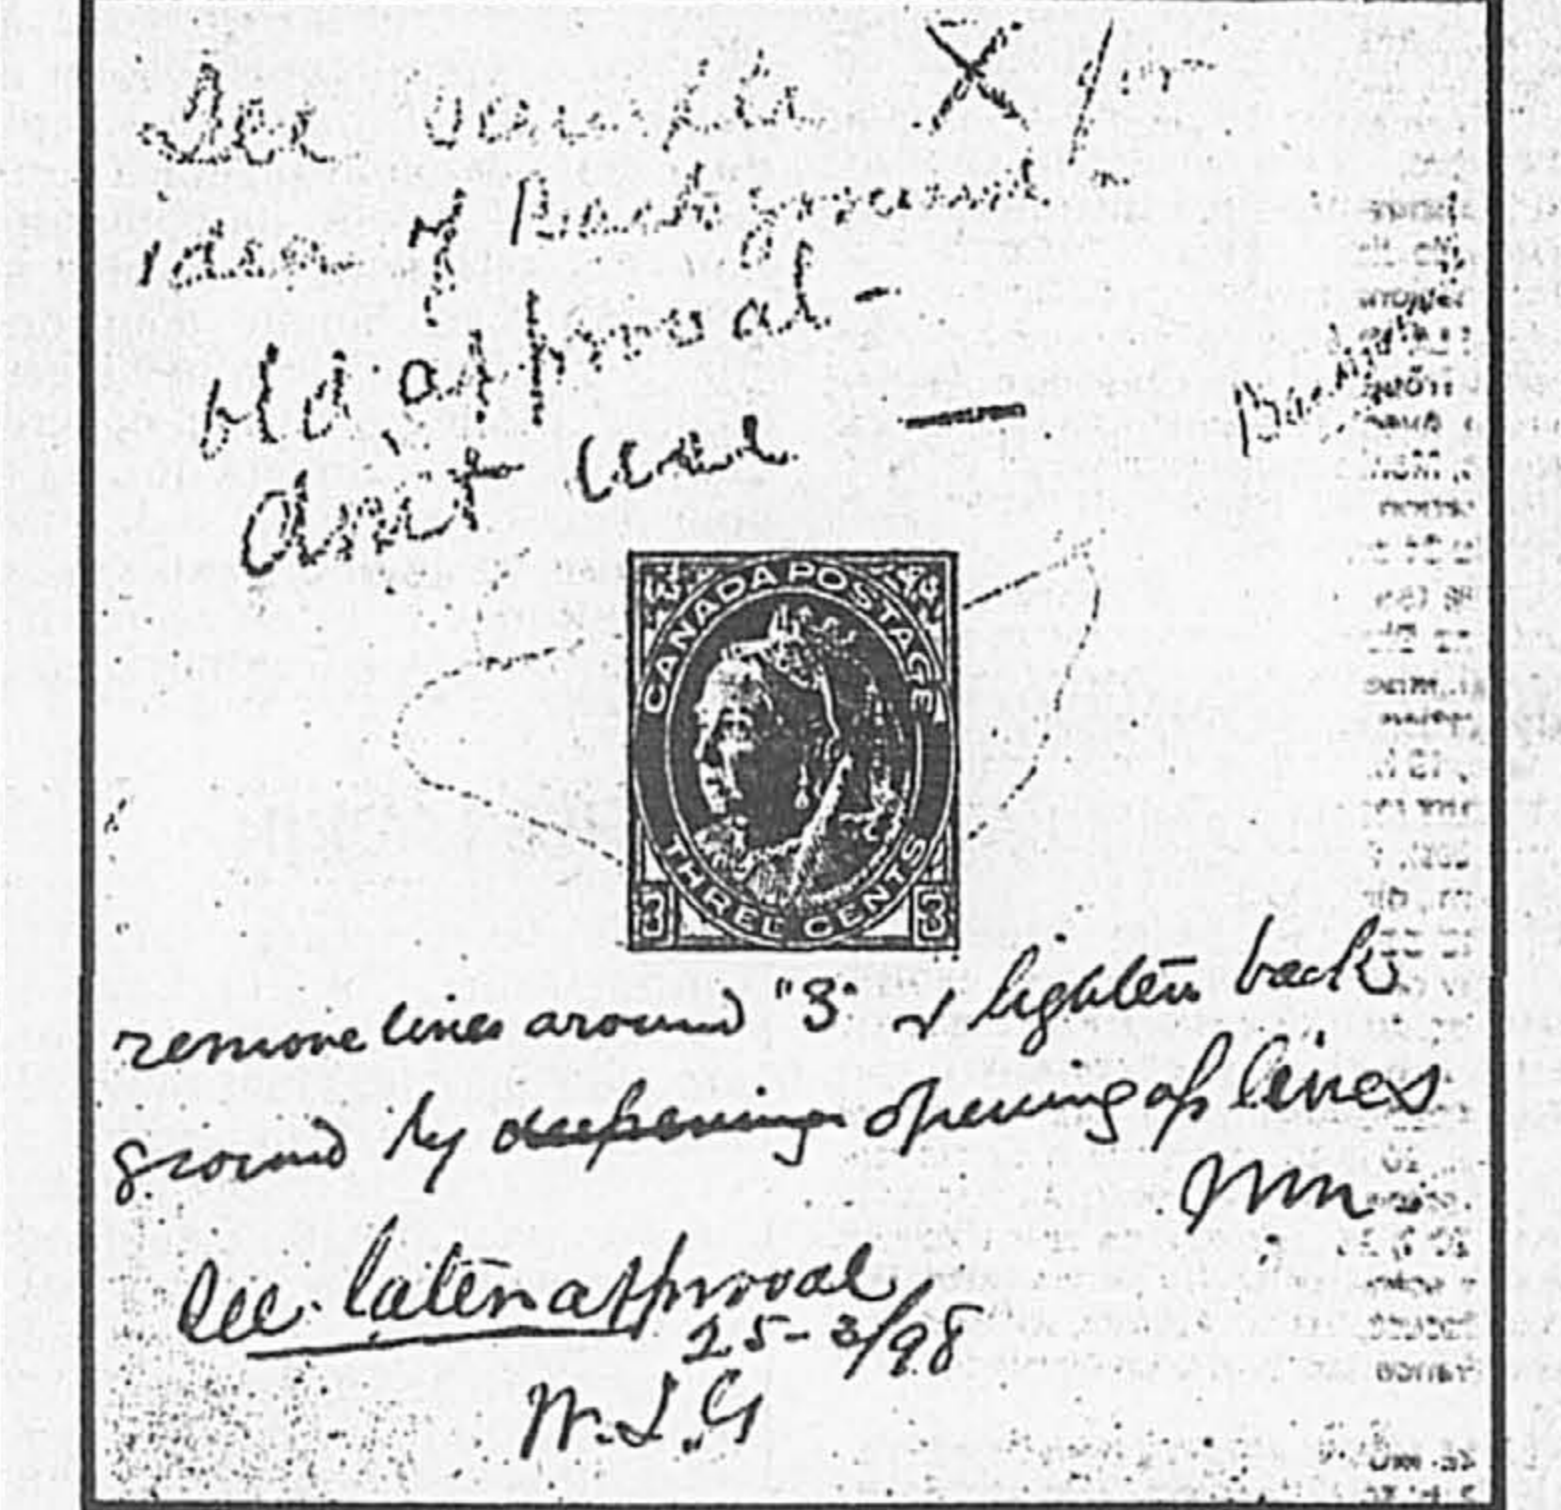 See X for
idea of Background
old approval -
don't use —
CANADA POSTAGE
THREE CENTS
3 3
remove lines around "3" & lighten back
ground by deepening opening up lines
see later approval
25-3/98
W.L.G